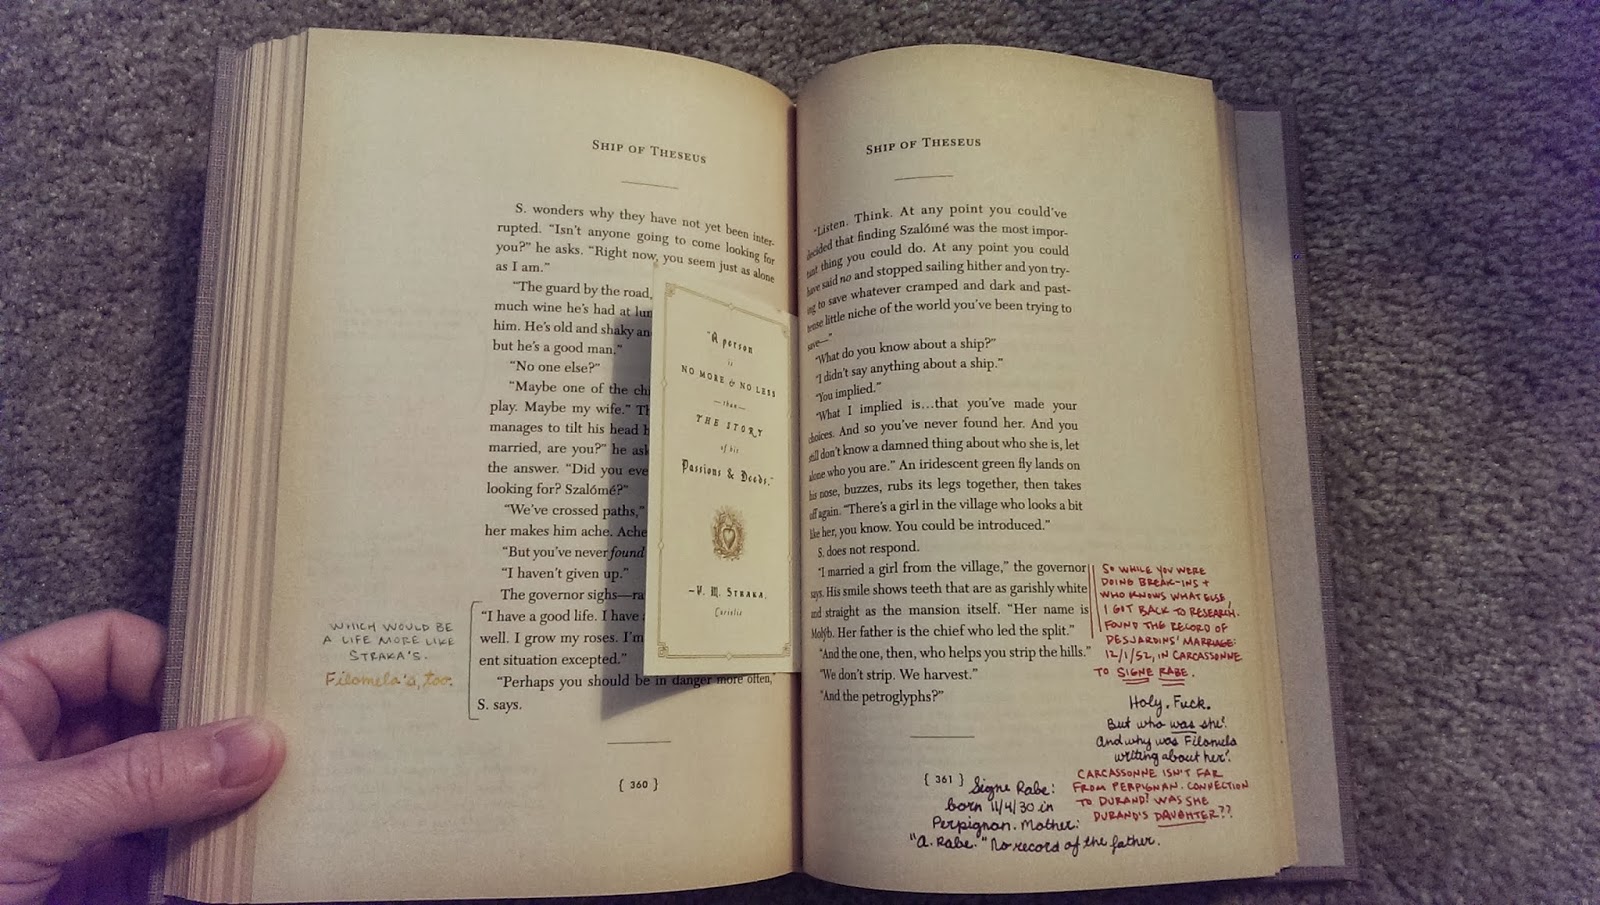 SHIP OF THESEUS
S. wonders why they have not yet been inter-
rupted. “Isn’t anyone going to come looking for
you?” he asks. “Right now, you seem just as alone
as I am.”
“The guard by the road,
much wine he’s had at lun
him. He’s old and shaky an
but he’s a good man.”
“No one else?”
“Maybe one of the chi
play. Maybe my wife.” Th
manages to tilt his head h
married, are you?” he ask
the answer. “Did you eve
looking for? Szalómé?”
“We’ve crossed paths,”
her makes him ache. Ache
“But you’ve never found
“I haven’t given up.”
The governor sighs—ra
“I have a good life. I have
well. I grow my roses. I’m
ent situation excepted.”
“Perhaps you should be in danger more often,”
S. says.
{ 360 }
WHICH WOULD BE
A LIFE MORE LIKE
STRAKA’S.
Filomela’s, too.
“A person
is
NO MORE & NO LESS
—than—
THE STORY
of his
Passions & Deeds.”
—V. M. STRAKA,
Coriolis
SHIP OF THESEUS
“Listen. Think. At any point you could’ve
decided that finding Szalómé was the most impor-
tant thing you could do. At any point you could
have said no and stopped sailing hither and yon try-
ing to save whatever cramped and dark and past-
tense little niche of the world you’ve been trying to
save—”
“What do you know about a ship?”
“I didn’t say anything about a ship.”
“You implied.”
“What I implied is...that you’ve made your
choices. And so you’ve never found her. And you
still don’t know a damned thing about who she is, let
alone who you are.” An iridescent green fly lands on
his nose, buzzes, rubs its legs together, then takes
off again. “There’s a girl in the village who looks a bit
like her, you know. You could be introduced.”
S. does not respond.
“I married a girl from the village,” the governor
says. His smile shows teeth that are as garishly white
and straight as the mansion itself. “Her name is
Molýb. Her father is the chief who led the split.”
“And the one, then, who helps you strip the hills.”
“We don’t strip. We harvest.”
“And the petroglyphs?”
{ 361 }
SO WHILE YOU WERE
DOING BREAK-INS +
WHO KNOWS WHAT ELSE,
I GOT BACK TO RESEARCH.
FOUND THE RECORD OF
DESJARDINS’ MARRIAGE:
12/1/52, IN CARCASSONNE
TO SIGNE RABE.
Holy. Fuck.
But who was she?
And why was Filomela
writing about her?
CARCASSONNE ISN’T FAR
FROM PERPIGNAN. CONNECTION
TO DURAND? WAS SHE
DURAND’S DAUGHTER??
Signe Rabe:
born 11/4/30 in
Perpignan. Mother:
“A. Rabe.” No record of the father.